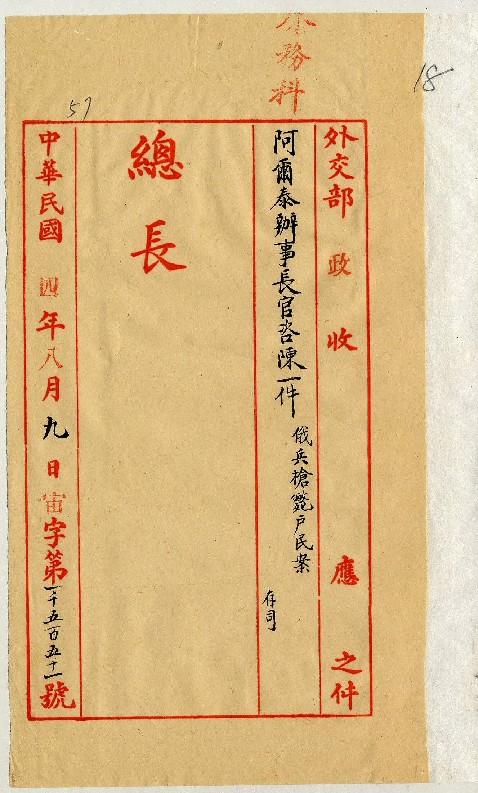 務科
18
57
外交部 政 收 應 之件
阿爾泰辦事長官咨陳一件 俄兵槍斃戶民案 存司
總長
中華民國 四年八月九日宙字第一千五百五十一號